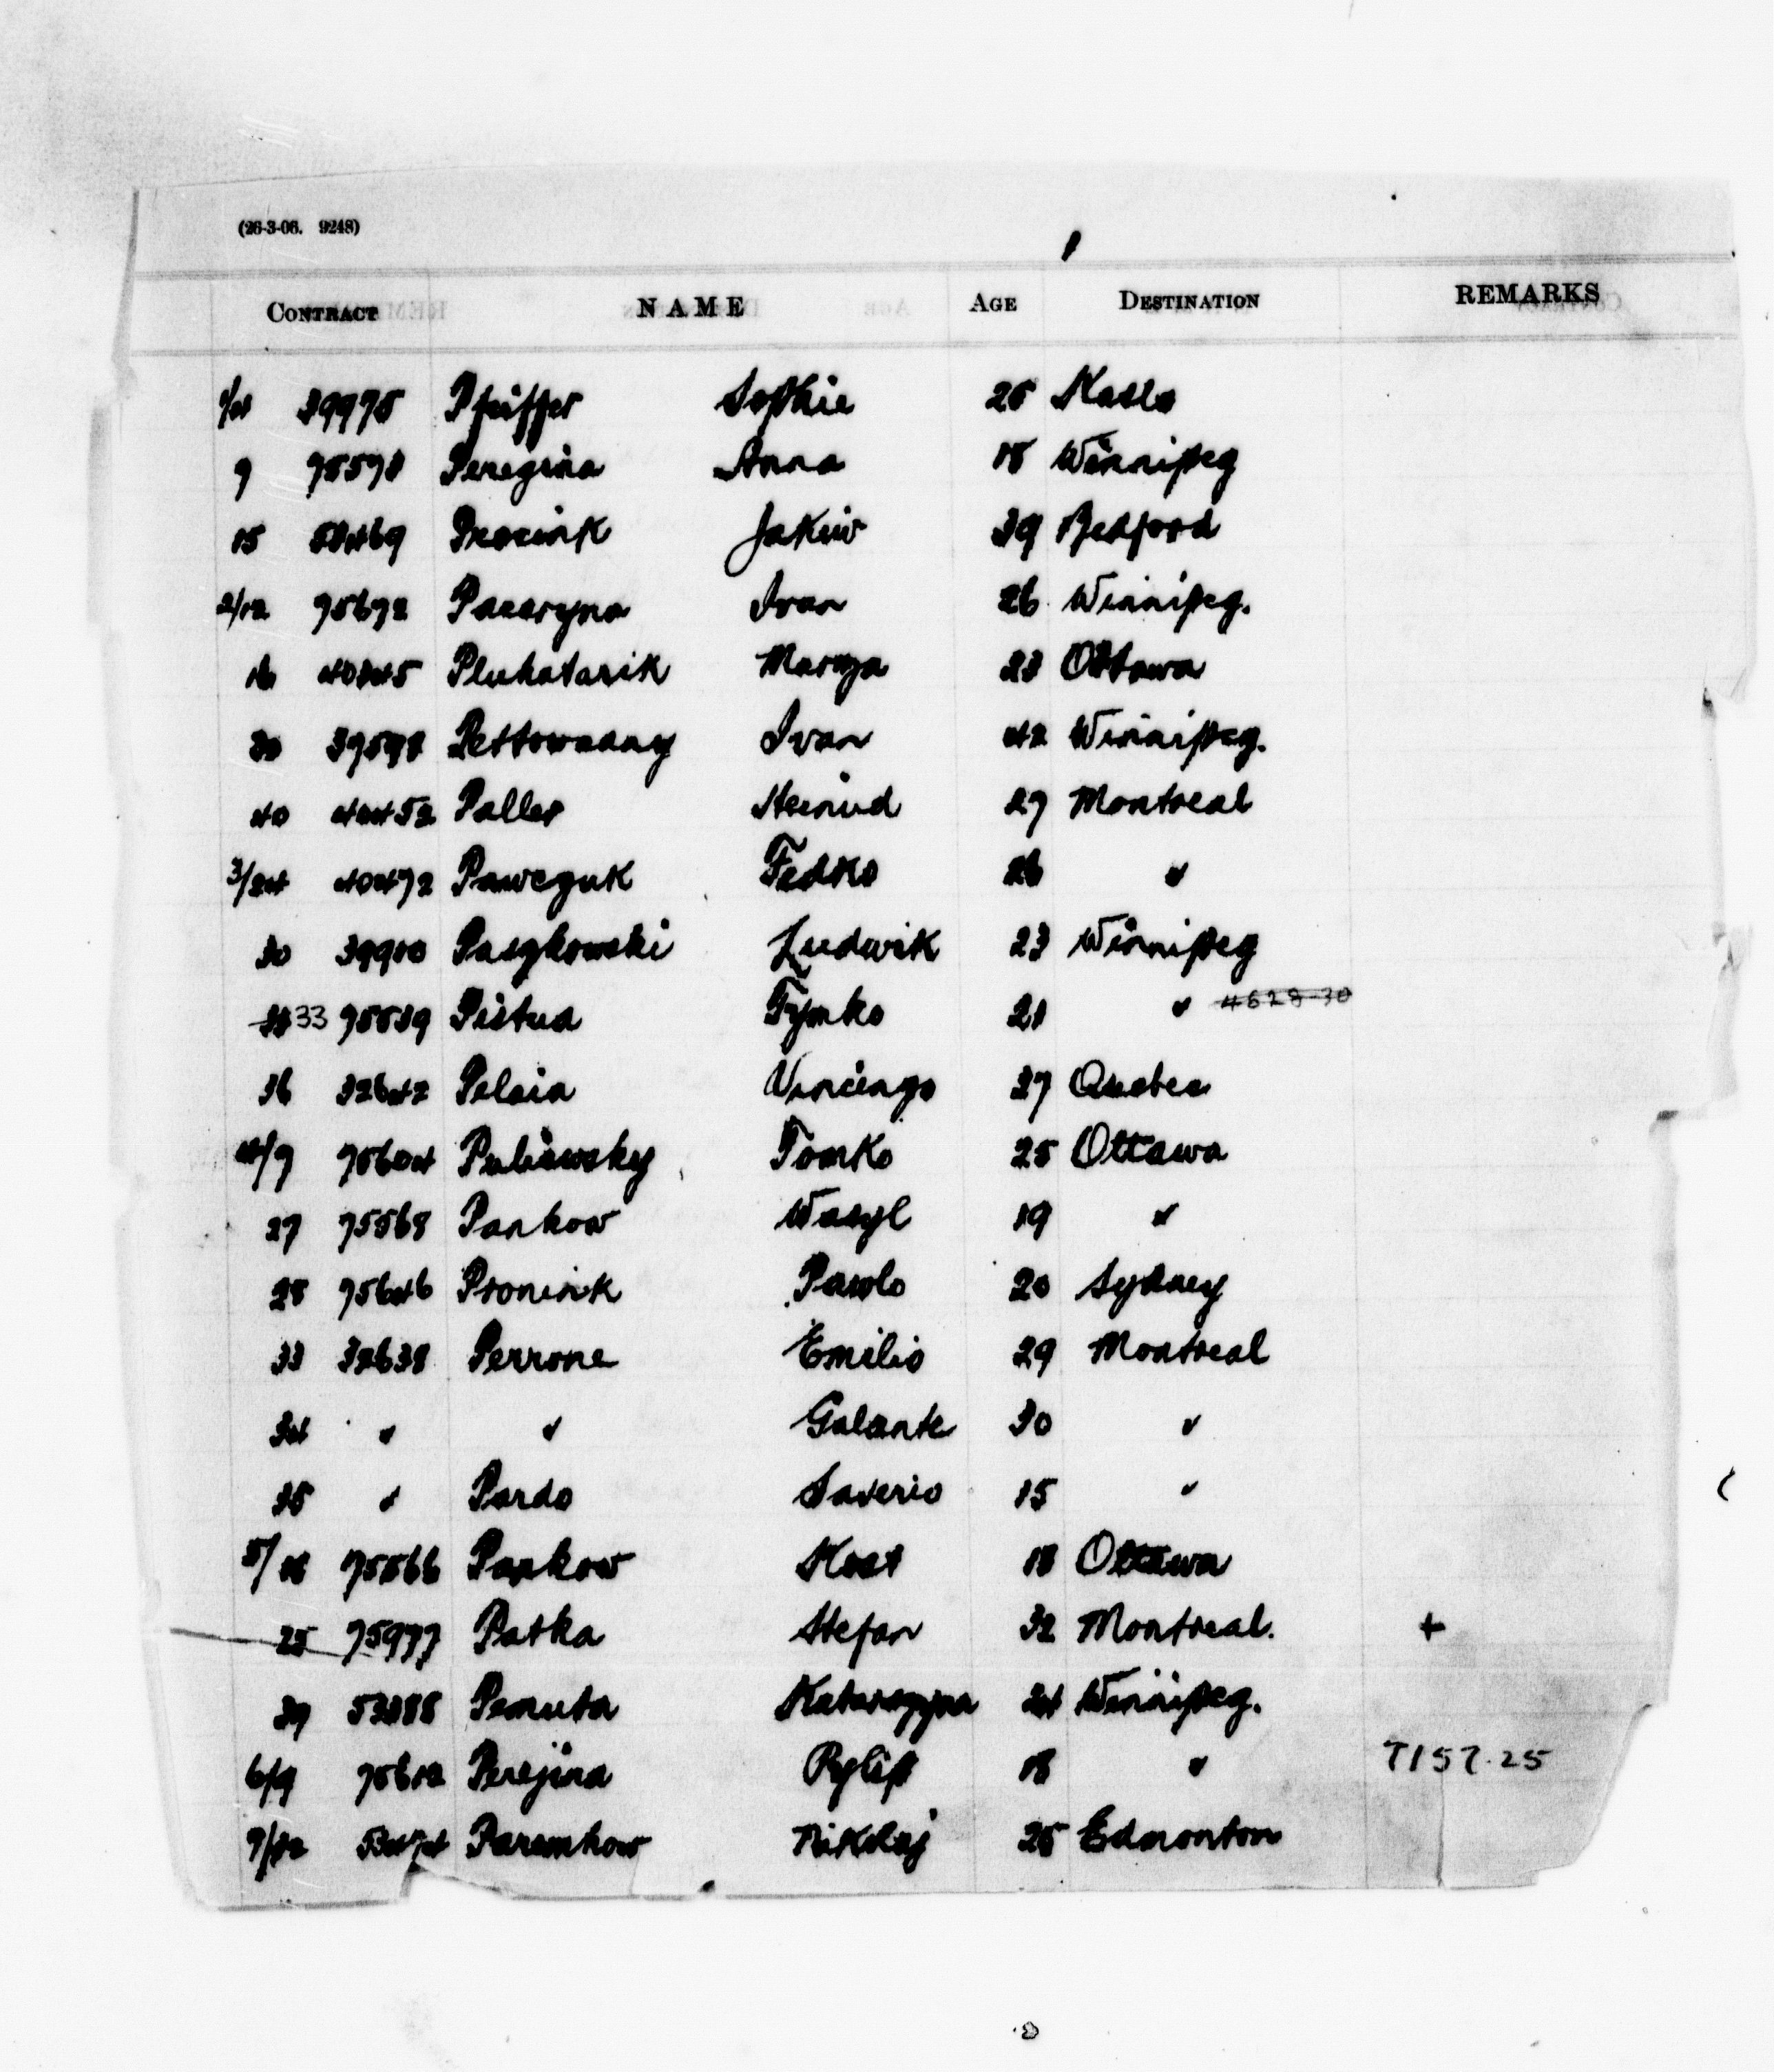 (26-3-06. 9248)
CONTRACT NAME AGE DESTINATION REMARKS
1/4 39975 Pfeiffer Sophie 25 Kaslo
9 75571 Peregina Anna 18 Winnipeg
15 Jakiw 39 Bedford
2/12 75672 Pacaryna Ivan 26 Winnipeg.
16 Pluhatarik Marya 23 Ottawa
30 Ivan 42 Winnipeg.
40 40452 Paller 27 Montreal
3/24 40472 Pawczuk Fedko 26 "
30 39910 Paszkowski Ludwik 23 Winnipeg
33 75539 Pistud Tymko 21 " 4628-30
36 32642 Peloia Vincenzo 37 Quebec
4/9 75604 Puliawsky Tomko 25 Ottawa
27 75568 Pankow Wasyl 19 "
28 75646 Proniuk Pawlo 20 Sydney
33 32638 Perrone Emilio 29 Montreal
34 " " Galante 30 "
35 " Pardo Saverio 15 "
5/16 75566 Pankow Kost 18 Ottawa
25 75977 Patka Stefan 32 Montreal. +
39 Pemuta Katarzyna 24 Winnipeg.
6/9 75612 Perejina Pylip 18 " T157.25
7/12 53474 Paramkow Nikolaj 25 Edmonton